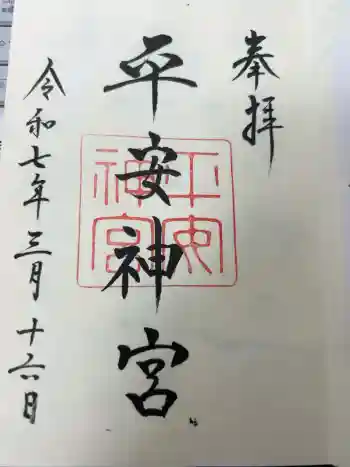 奉拝
平安神宮
平安神宮
令和七年三月十六日